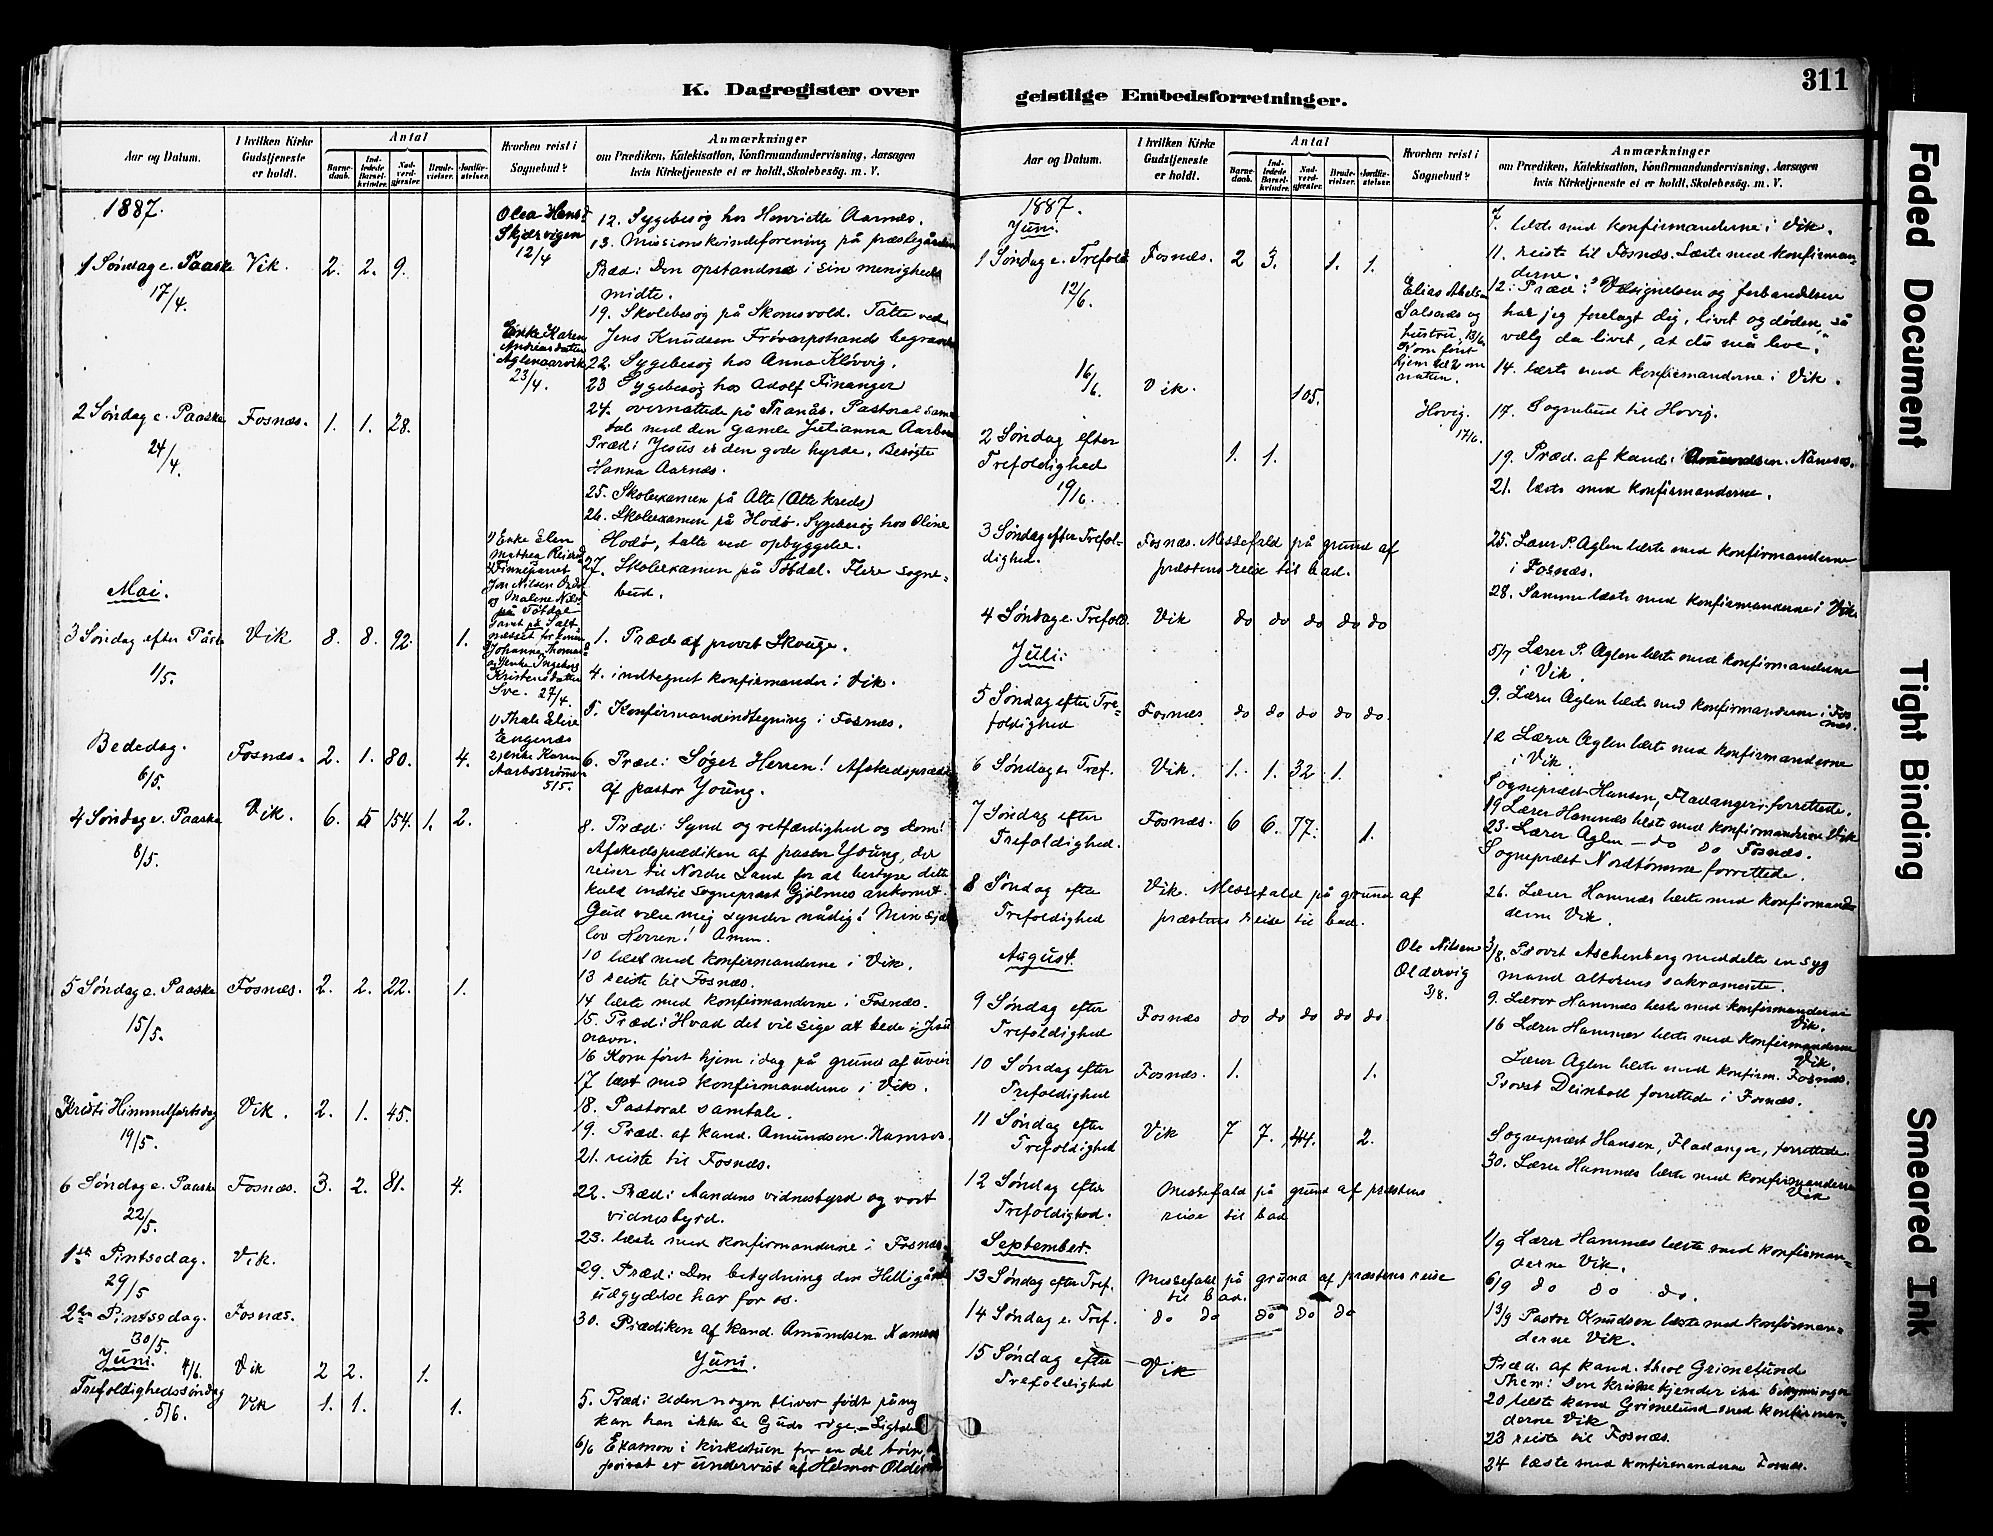 K. Dagregister over
Aar og Datum.
I hvilken Kirke Gudstjeneste er holdt.
Antal
Barnedaab.
Indledede Barselkvinder.
Nadverdgjester.
Brudevielser.
Jordfæstelser.
Hvorhen reist i Sognebud?
Anmærkninger
om Prædiken, Katekisation, Konfirmandundervisning, Aarsagen
hvis Kirketjeneste ei er holdt, Skolebesøg. m. V.
1887.
Olea Hans
Skjærvigen
12/4
12. Sygebesøg hos Henriette Aarnæs.
13. Missionskvindeforening på præstegården
1 Søndag e. Paaske Vik. 2. 2. 9.
17/4.
Præd: Den opstandne i sin menigheds
midte.
19. Skolebesøg på Skomsvold. Talte ved
Jens Knudsen begravelse
Enke Karen
Andreasdatter
23/4.
22. Sygebesøg hos Anna Kløvvig.
23 Sygebesøg hos Adolf Finanger
2 Søndag e. Paaske Fosnæs. 1. 1. 28.
24/4.
24. overnattede på Tranås. Pastoral sam
tale med den gamle Julianna
Præd: Jesus er den gode hyrde. Besøgte
Hanna Aarnæs.
25. Skolexamen på Alte (Alte kreds)
26. Skolexamen på Hodø. Sygebesøg hos Oline
Hodø, talte ved opbyggelse.
1) Enke Elen
Mathea
27. Skolexamen på Tøtdal. Flere sogne-
bud.
Mai.
3 Søndag efter Påske Vik 8. 8. 92. 1.
1/5.
Johanna
Kristensdatter
27/4.
1. Præd af provst Skouge.
4. indtegnet konfirmander i Vik.
5. Konfirmandindtegning i Fosnæs.
1) Thale Elise
Engenæs
2) enke Karen
5/5.
Bededag. Fosnæs. 2. 1. 80. 4.
6/5.
6. Præd: Søger Herren! Afskedspræd
af pastor Young.
4 Søndag e. Paaske Vik. 6. 5 154. 1. 2.
8/5.
8. Præd: Synd og retfærdighed og dom!
Afskedsprædiken af pastor Young, der
reiser til Nordre Land for at bestyre dette
kald indtil sognepræst Gjølmes ankomst.
Gud være mig synder nådig! Min sjæl
lov Herren! Amen.
10 læst med konfirmanderne i Vik.
13 reiste til Fosnæs.
5 Søndag e. Paaske Fosnæs. 2. 2. 22. 1.
15/5.
14 læste med konfirmanderne i Fosnæs.
15. Præd: Hvad det vil sige at bede i Jesu
navn.
16 Kom først hjem idag på grund af uveir
17 læst med konfirmanderne i Vik.
Kristi Himmelfartsdag Vik. 2. 1. 45.
19/5.
18. Pastoral samtale.
19. Præd. af kand. Amundsen. Namsos.
21. reiste til Fosnæs.
6 Søndag e. Paaske Fosnæs. 3. 2. 81. 4.
22/5.
22. Præd: Aandens vidnesbyrd og vort
vidnesbyrd.
23. læste med konfirmanderne i Fosnæs.
1ste Pintsedag. Vik.
29/5
29. Præd: Den betydning den Helligånds
udgydelse har for os.
2den Pintsedag. Fosnæs.
30/5.
30. Prædiken af kand. Amundsen Namsos
Juni. 4/6. Vik 2 2. 1.
Juni.
Trefoldighedssøndag Vik 1. 1. 1.
5/6.
5. Præd: Uden nogen bliver født påny
kan han ikke se Guds rige.
6/6 Examen i kirkestuen for en del børn,
privat er undervist af
geistlige Embedsforretninger.
311
Aar og Datum.
I hvilken Kirke Gudstjeneste er holdt.
Antal
Barnedaab.
Indledede Barselkvinder.
Nadverdgjester.
Brudevielser.
Jordfæstelser.
Hvorhen reist i Sognebud?
Anmærkninger
om Prædiken, Katekisation, Konfirmandundervisning, Aarsagen
hvis Kirketjeneste ei er holdt, Skolebesøg. m. V.
1887.
Juni.
7. læste med konfirmanderne i Vik.
11. reiste til Fosnæs. Læste med konfirman-
derne.
1 Søndag e. Trefold. Fosnæs. 2 3. 1. 1.
12/6.
Elias Abelsen
Salsnæs og
hustru, 13/6
Kom først
hjem
natten.
12: Præd: Velsignelsen og forbandelsen
har jeg forelagt dig, livet og døden, så
vælg da livet, at du må leve.
14. læste med konfirmanderne i Vik.
16/6. Vik. 105.
Hovig.
17/6.
17. Sognebud til Hovig.
2 Søndag efter
Trefoldighed 1. 1.
19/6.
19. Præd. af kand. Amundsen. Namsos.
21. læste med konfirmanderne.
3 Søndag efter Trefol-
dighed.
Fosnæs. Messefald på grund af
præstens reise til bad.
25. Lærer P. Aglen læste med konfirmanderne
i Fosnæs.
28. Samme læste med konfirmanderne i Vik
4 Søndag e. Trefold. Vik do do do do do
Juli:
5/7 Lærer P. Aglen læste med konfirmanderne
i Vik.
5 Søndag efter Tre-
foldighed Fosnæs do do do do do.
9. Lærer Aglen læste med konfirmanderne i Fos
næs.
12 Lærer Aglen læste med konfirmanderne
i Vik.
6 Søndag e Tref. Vik. 1. 1. 32 1.
Sognepræst Hansen, Fladanger, forrettede.
19 Lærer Hammes læst med konfirmanderne Vik
7 Søndag efter
Trefoldighed. Fosnæs. 6 6. 77. 1.
23. Lærer Aglen – do do Fosnæs.
Sognepræst Nordtømme forrettede.
8 Søndag efter
Trefoldighed
Vik. Messefald på grund af
præstens reise til bad.
26. Lærer Hammes læste med konfirmand
derne Vik.
August.
Ole Nilsen
Oldervig
3/8.
3/8. Provst Aschenberg meddelte en syg
mand alterens sakramente.
9 Søndag efter
Trefoldighed Fosnæs do do do do do.
9. Lærer Hammes læste med konfirmanderne
Vik.
16 Lærer Hammes læste med konfirmanderne
Vik.
10 Søndag efter
Trefoldighed Fosnæs. 1. 1.
Lærer Aglen læste med konfirm. Fosnæs.
Provst Deinboll forrettede i Fosnæs.
11 Søndag efter
Trefoldighed Vik 7 7. 44. 2.
Sognepræst Hansen, Fladanger, forrettede.
30. Lærer Hammes læste med konfirmanderne
Vik
12 Søndag efter
Trefoldighed.
Messefald på grund af præstens
reise til bad
September.
1/9 Lærer Hammes læste med konfirman-
derne Vik.
13 Søndag efter Tref. Messefald på grund af præstens reise
til bad.
6/9 do do do.
14 Søndag e. Tref. do do do do do
13/9 Pastor Knudsen læste med konfirman-
derne Vik.
15 Søndag efter
Trefoldighed – Vik
Præd. af kand. theol Grimelund
Them: Den kristne kjender ikke bekymringer
20 læste kand Grimelund med konfirman-
derne Vik
23 reiste til Fosnæs.
24 læste med konfirmanderne Fosnæs.
Faded Document
Tight Binding
Smeared Ink